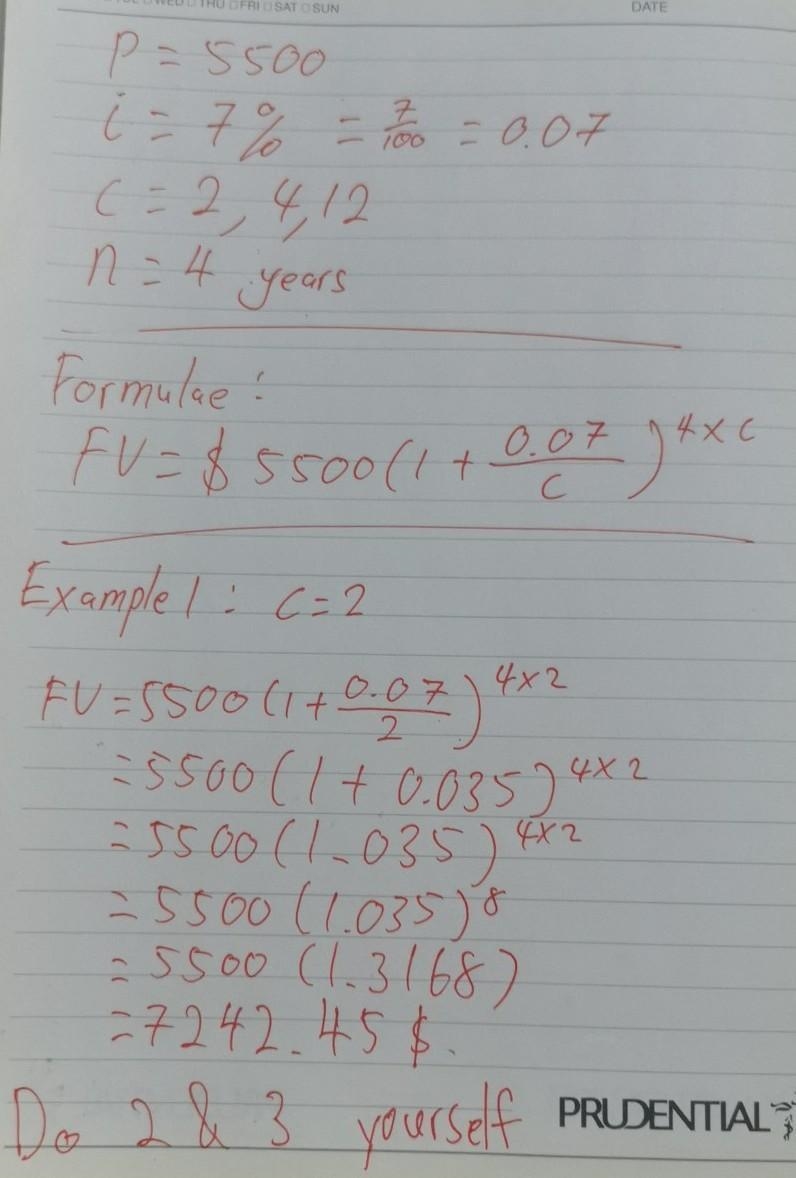 WED □ THU □ FRI □ SAT □ SUN DATE
P = 5500
i = 7% = 7/100 = 0.07
C = 2, 4, 12
n = 4 years
Formulae :
FV = $ 5500 (1 + 0.07/C)^4×C
Example 1 : C = 2
FV = 5500 (1 + 0.07/2)^4×2
= 5500 (1 + 0.035)^4×2
= 5500 (1.035)^4×2
= 5500 (1.035)^8
= 5500 (1.3168)
= 7242.45 $.
Do 2 & 3 yourself PRUDENTIAL